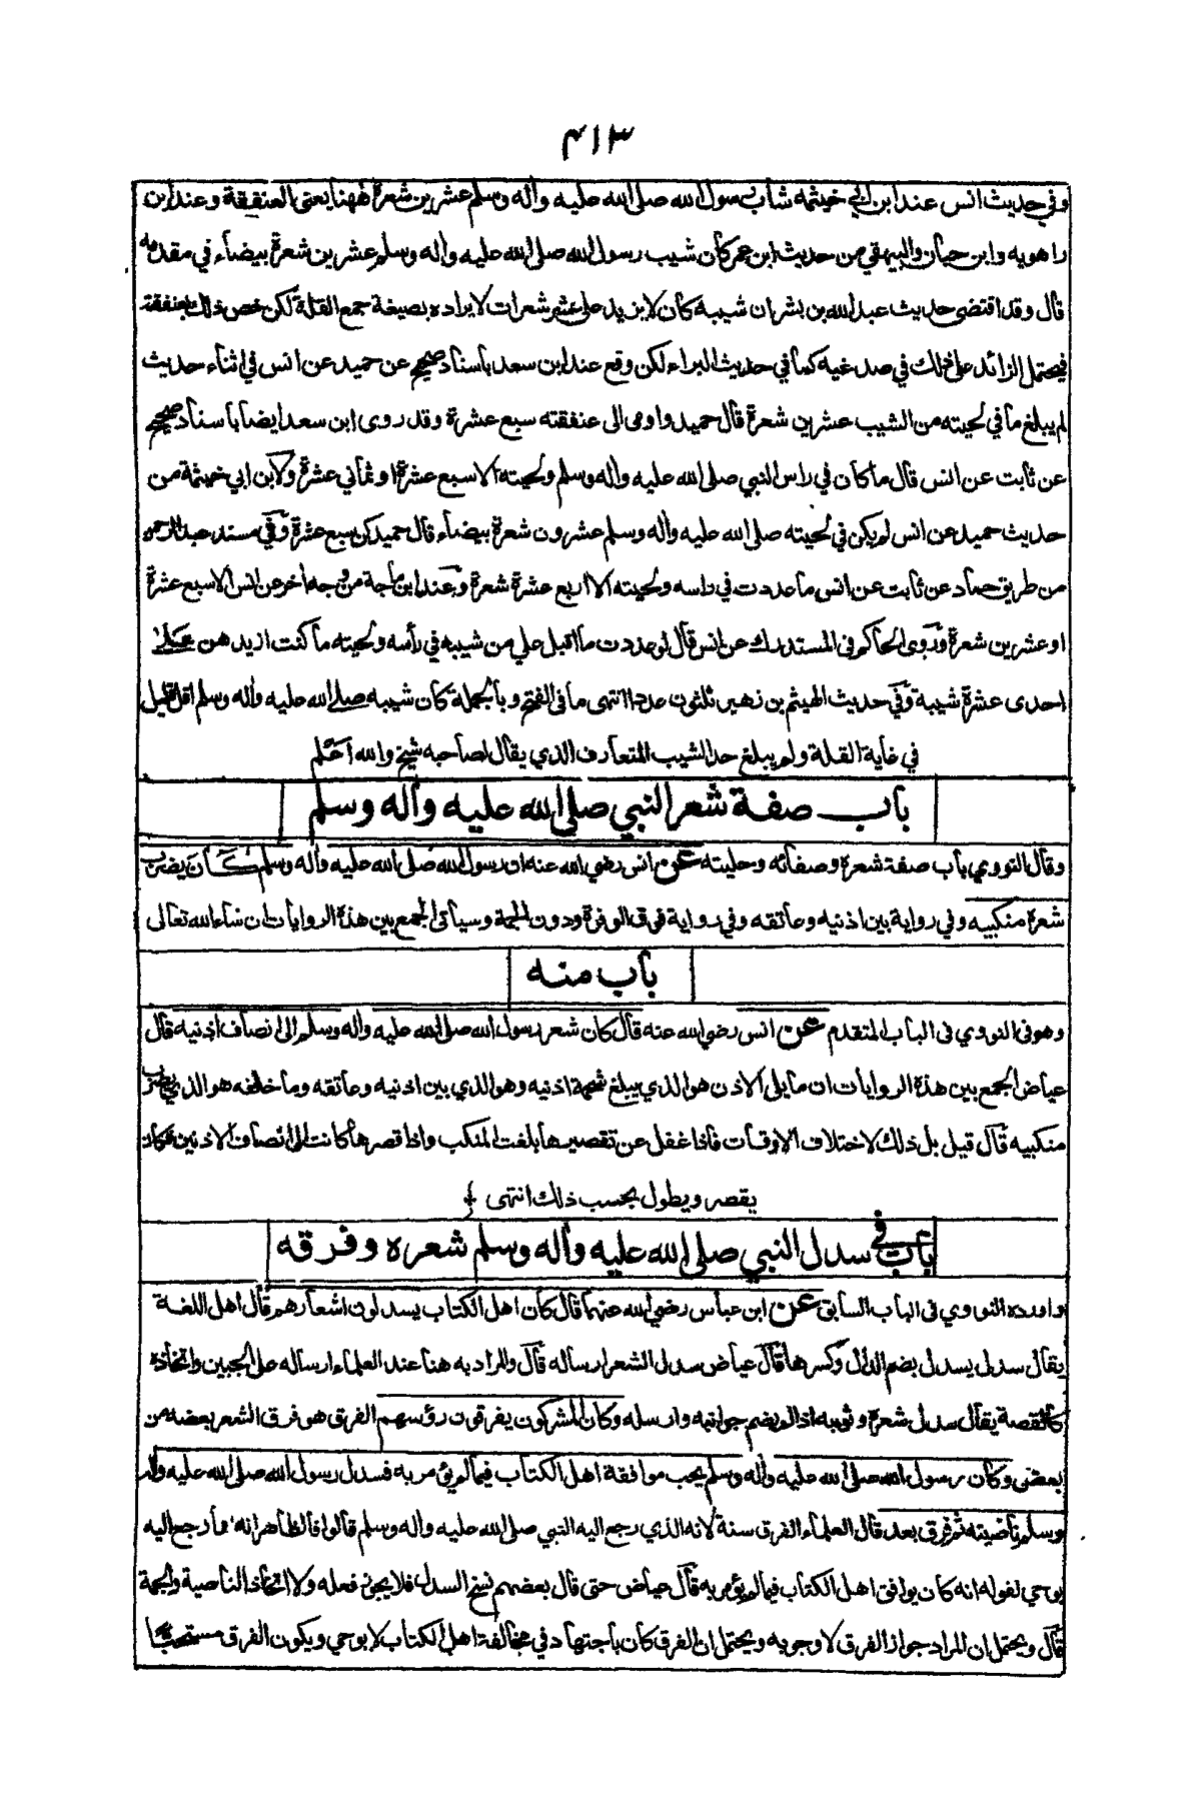 ٤١٣
وفي حديث انس عند ابن ابي خيثمه شاب رسول الله صلى الله عليه واله وسلم عشرين شعرة ههنا يعني العنفقة وعند ابن
راهويه وابن حبان والبيهقي من حديث ابن عمر كان شيب رسول الله صلى الله عليه واله وسلم عشرين شعرة بيضاء في مقدمه
قال وقد اقتضى حديث عبد الله بن بشر ان شيبه كان لا يزيد على عشر شعرات لايراده بصيغة جمع القلة لكن خص ذلك بعنفقته
فيحتمل الزائد على ذلك في صدغيه كما في حديث البراء لكن وقع عند ابن سعد باسناد صحيح عن حميد عن انس في اثناء حديث
لم يبلغ ما في لحيته من الشيب عشرين شعرة قال حميد واومى الى عنفقته سبع عشرة وقد روى ابن سعد ايضا باسناد صحيح
عن ثابت عن انس قال ما كان في راس النبي صلى الله عليه واله وسلم ولحيته الا سبع عشرة او ثماني عشرة ولابن ابي خيثمة من
حديث حميد عن انس لم يكن في لحيته صلى الله عليه واله وسلم عشرون شعرة بيضاء قال حميد كن سبع عشرة وفي مسند عبد
من طريق حماد عن ثابت عن انس ما عددت في راسه ولحيته الا اربع عشرة شعرة وعند ابن ماجة من وجه اخر عن انس الا سبع عشرة
او عشرين شعرة وروى الحاكم في المستدرك عن انس قال لو عددت ما اقبل علي من شيبه في رأسه ولحيته ما كنت ازيدهن على
احدى عشرة شيبة وفي حديث الهيثم بن زهير ثلثون عددا انتهى ما في الفتح وبالجملة كان شيبه صلى الله عليه واله وسلم اقل قليل
في غاية القلة ولم يبلغ حد الشيب المتعارف الذي يقال لصاحبه شيخ والله اعلم
باب صفة شعر النبي صلى الله عليه واله وسلم
وقال النووي باب صفة شعره وصفاته وحليته عن انس رضي الله عنه ان رسول الله صلى الله عليه واله وسلم كان يضرب
شعره منكبيه وفي رواية بين اذنيه وعاتقه وفي رواية فوق الوفرة ودون الجمة وسيأتى الجمع بين هذه الروايات ان شاء الله تعالى
باب منه
وهو في النووي فى الباب المتقدم عن انس رضي الله عنه قال كان شعر رسول الله صلى الله عليه واله وسلم الى انصاف اذنيه قال
عياض الجمع بين هذه الروايات ان ما يلى الاذن هو الذي يبلغ شحمة اذنيه وهو الذي بين اذنيه وعاتقه وما خلفه هو الذي يضرب
منكبيه قال قيل بل ذلك لاختلاف الاوقات فاذا غفل عن تقصيرها بلغت المنكب واذا قصرها كانت الى انصاف الاذنين فكان
يقصر ويطول بحسب ذلك انتهى
باب في سدل النبي صلى الله عليه واله وسلم شعره وفرقه
واورده النووي فى الباب السابق عن ابن عباس رضي الله عنهما قال كان اهل الكتاب يسدلون اشعارهم قال اهل اللغة
يقال سدل يسدل بضم الدال وكسرها قال عياض سدل الشعر ارساله قال والمراد به هنا عند العلماء ارساله على الجبين واتخاذه
كالقصة يقال سدل شعره وثوبه اذا لم يضم جوانبه وارسله وكان المشركون يفرقون رؤسهم الفرق هو فرق الشعر بعضه من
بعض وكان رسول الله صلى الله عليه واله وسلم يحب موافقة اهل الكتاب فيما لم يؤمر به فسدل رسول الله صلى الله عليه واله
وسلم ناصيته ثم فرق بعد قال العلماء الفرق سنة لانه الذي رجع اليه النبي صلى الله عليه واله وسلم قالوا فالظاهر انه انما رجع اليه
بوحي لقوله انه كان يوافق اهل الكتاب فيما لم يؤمر به قال عياض حتى قال بعضهم نسخ السدل فلا يجوز فعله ولا اتخاذ الناصية والجمة
قال ويحتمل ان المراد جواز الفرق لا وجوبه ويحتمل ان الفرق كان باجتهاد في مخالفة اهل الكتاب لا بوحي ويكون الفرق مستحبا